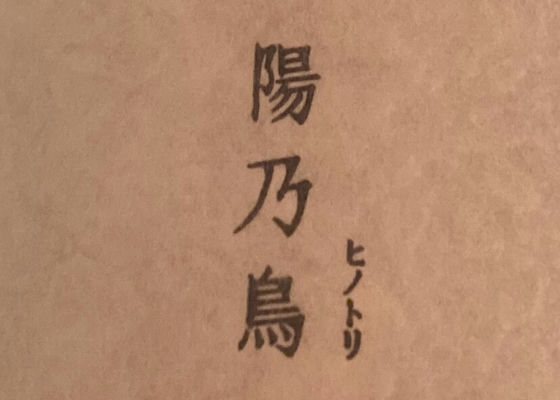 陽乃鳥
ヒノトリ